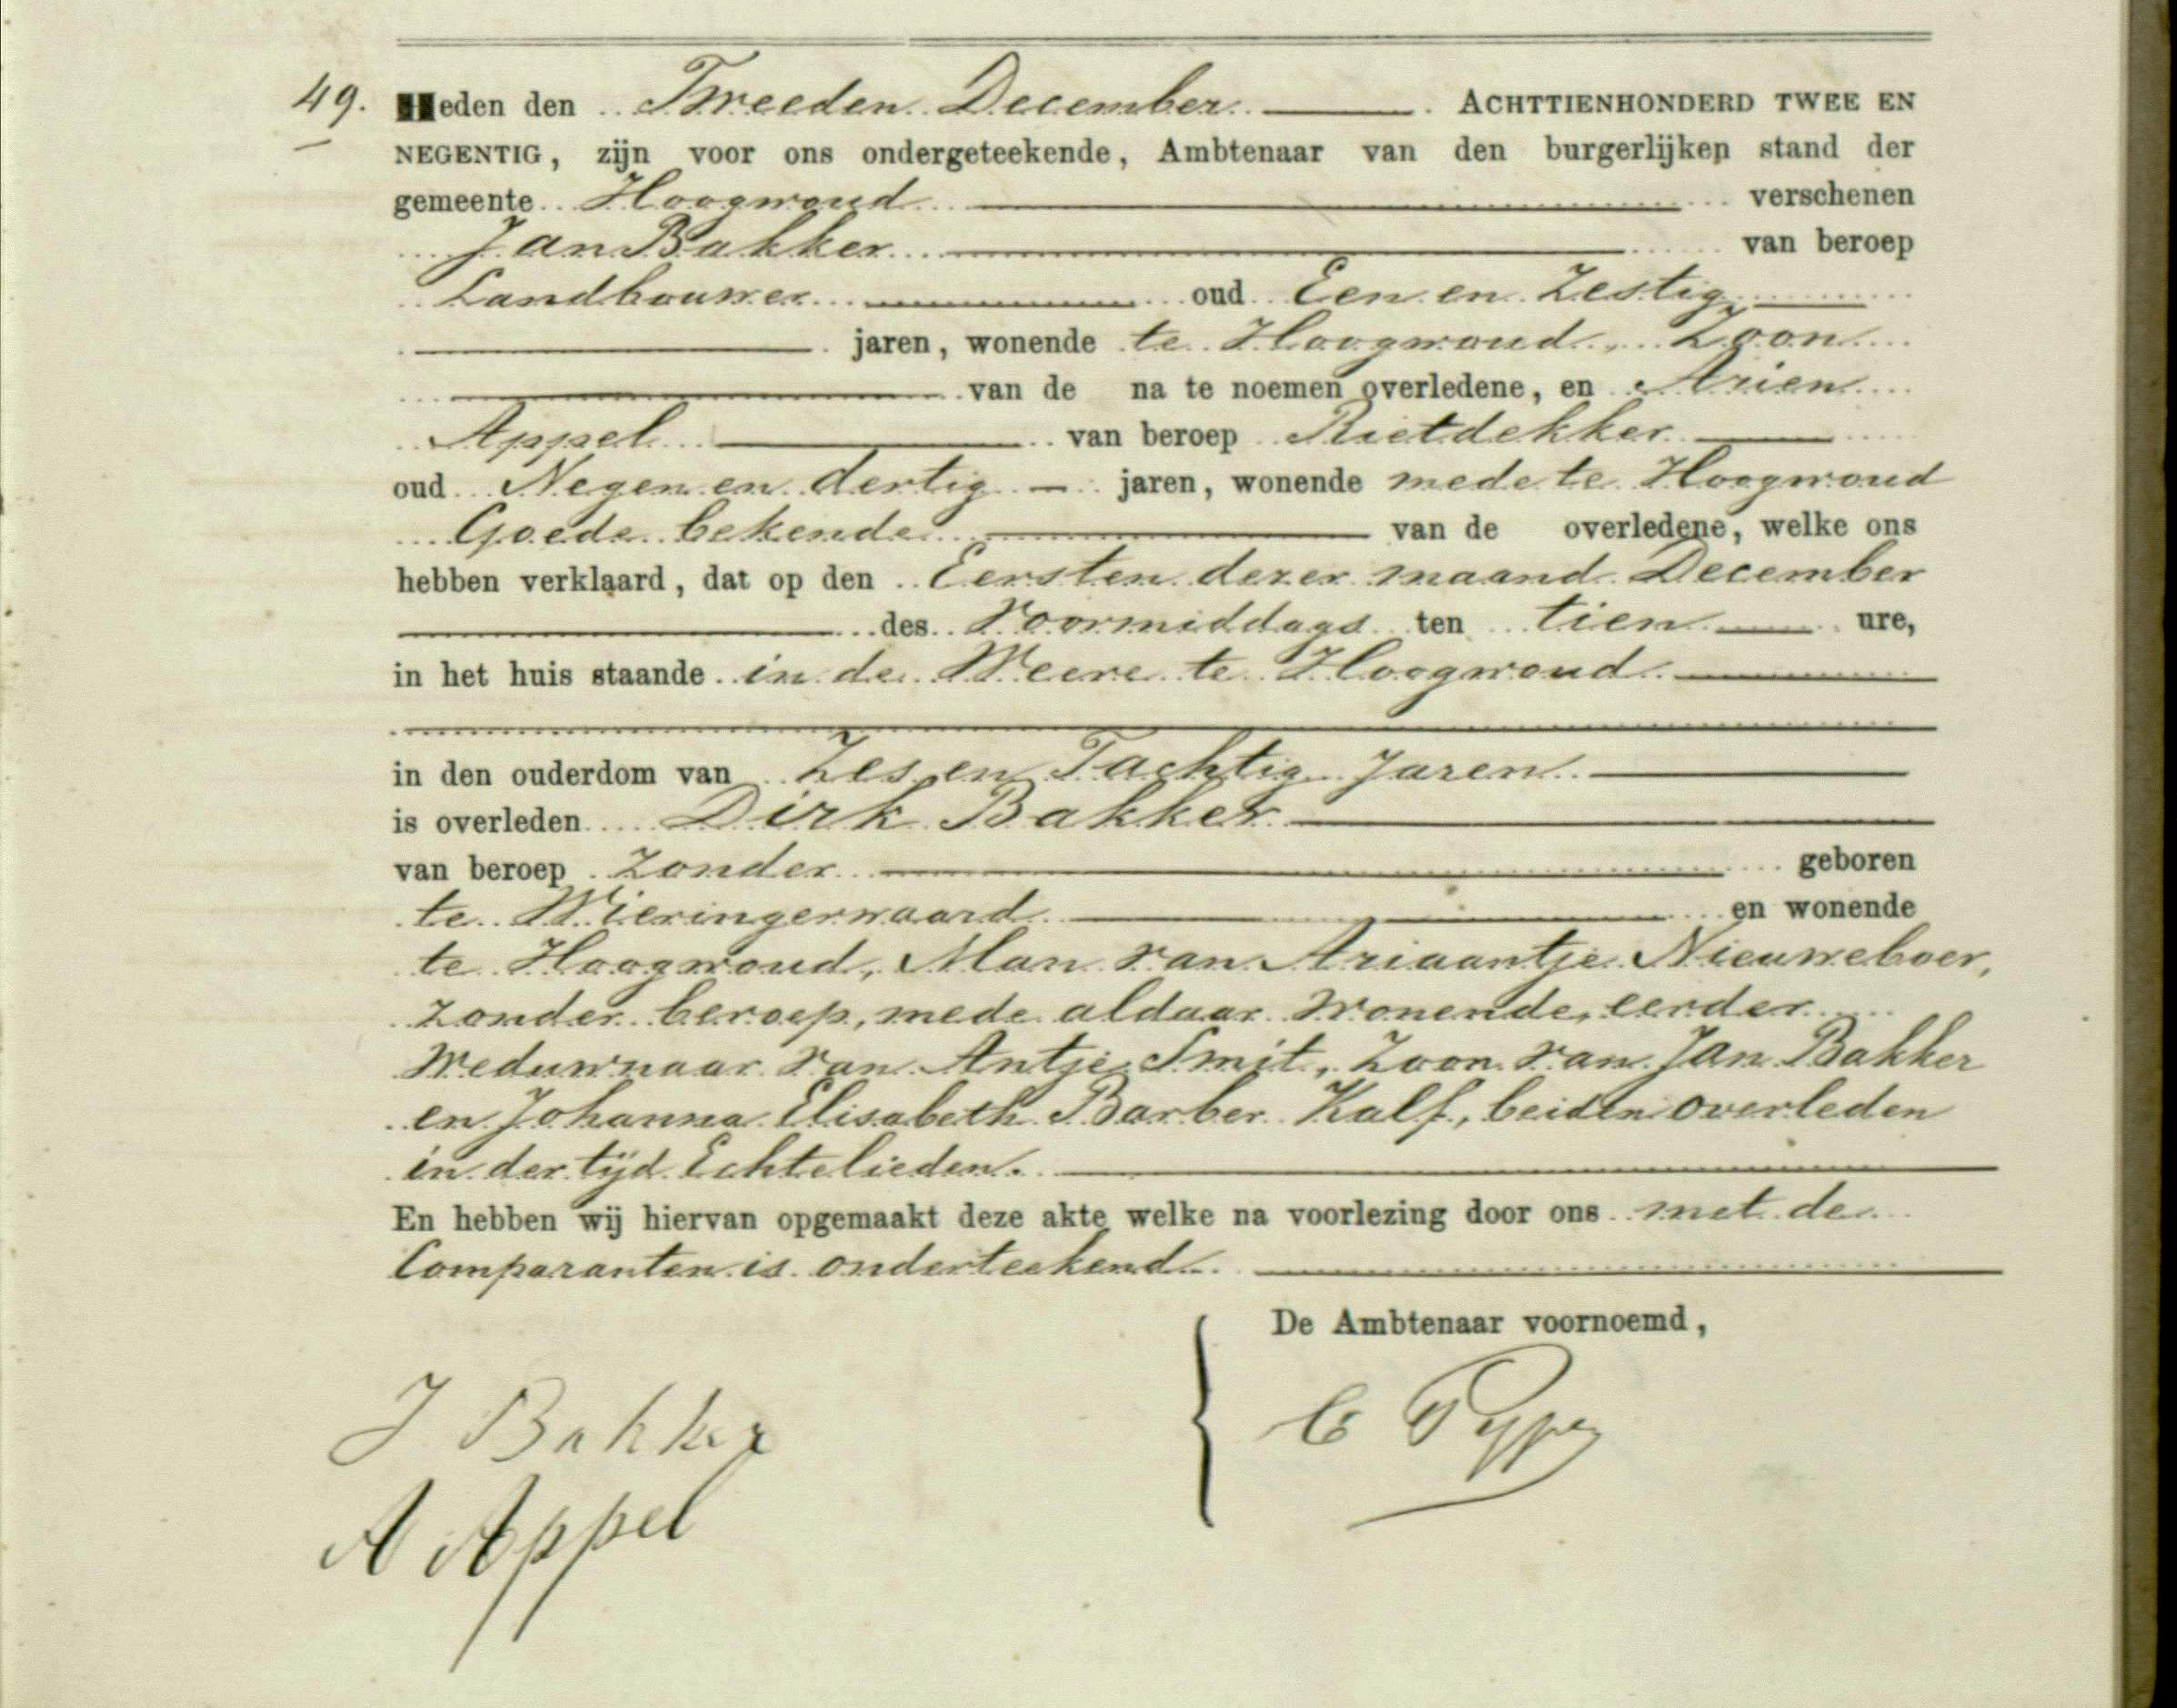 49. Heden den Tweeden December ACHTTIENHONDERD TWEE EN
NEGENTIG, zijn voor ons ondergeteekende, Ambtenaar van den burgerlijken stand der
gemeente Hoogwoud verschenen
Jan Bakker van beroep
Landbouwer oud Een en Zestig
jaren, wonende te Hoogwoud, Zoon
van de na te noemen overledene, en Arien
Appel van beroep Rietdekker
oud Negen en dertig jaren, wonende mede te Hoogwoud
Goede bekende van de overledene, welke ons
hebben verklaard, dat op den Eersten dezer maand December
des Voormiddags ten tien ure,
in het huis staande in de Weere te Hoogwoud
in den ouderdom van Zes en Tachtig Jaren
is overleden Dirk Bakker
van beroep Zonder geboren
te Wieringerwaard en wonende
te Hoogwoud, Man van Ariaantje Nieuweboer,
zonder beroep, mede aldaar wonende, eerder
Weduwnaar van Antje Smit, Zoon van Jan Bakker
en Johanna Elisabeth Barber Kalf, beiden overleden
in der tijd Echtelieden.
En hebben wij hiervan opgemaakt deze akte welke na voorlezing door ons met de
Comparanten is onderteekend.
De Ambtenaar voornoemd,
J Bakker
A Appel